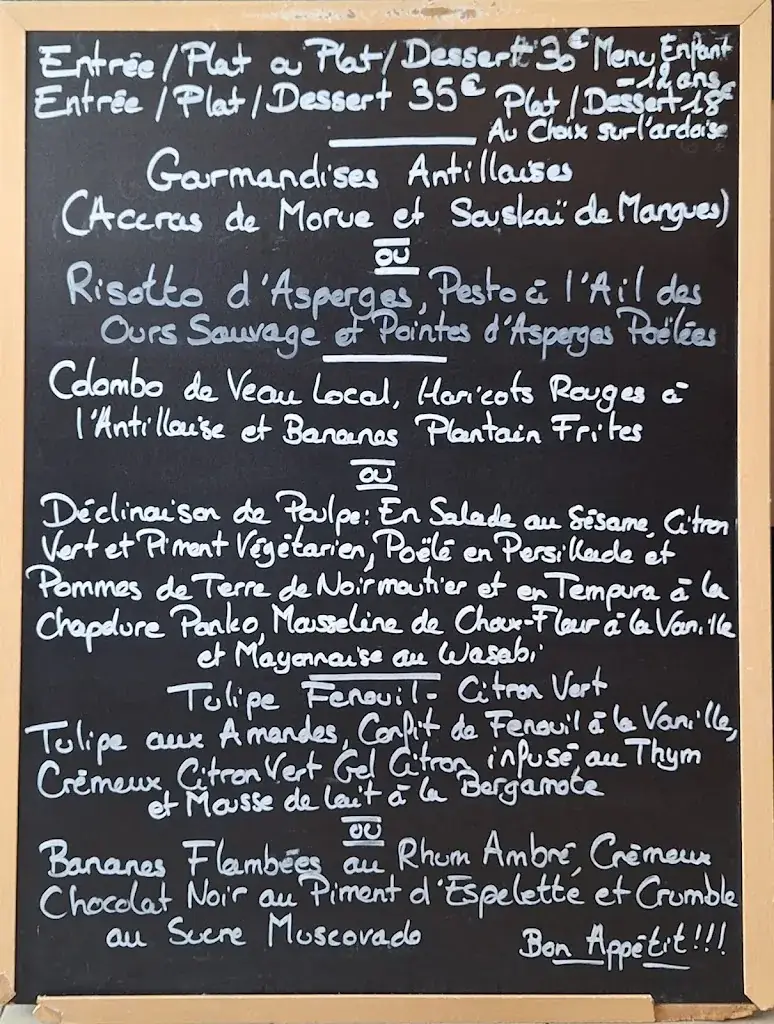 Entrée / Plat ou Plat / Dessert 30€
Entrée / Plat / Dessert 35€
Menu Enfant
-12 ans
Plat / Dessert 18€
Au Choix sur l'ardoise
Gourmandises Antillaises
(Accras de Morue et Souskaï de Mangues)
ou
Risotto d'Asperges, Pesto à l'Ail des
Ours Sauvage et Pointes d'Asperges Poëlées
Colombo de Veau Local, Haricots Rouges à
l'Antillaise et Bananes Plantain Frites
ou
Déclinaison de Poulpe: En Salade au Sésame, Citron
Vert et Piment Végétarien, Poëlé en Persillade et
Pommes de Terre de Noirmoutier et en Tempura à la
Chapelure Panko, Mousseline de Choux-Fleur à la Vanille
et Mayonnaise au Wasabi
Tulipe Fenouil - Citron Vert
Tulipe aux Amandes, Confit de Fenouil à la Vanille,
Crémeux Citron Vert Gel Citron infusé au Thym
et Mousse de lait à la Bergamote
ou
Bananes Flambées au Rhum Ambré, Crèmeux
Chocolat Noir au Piment d'Espelette et Crumble
au Sucre Muscovado
Bon Appétit!!!